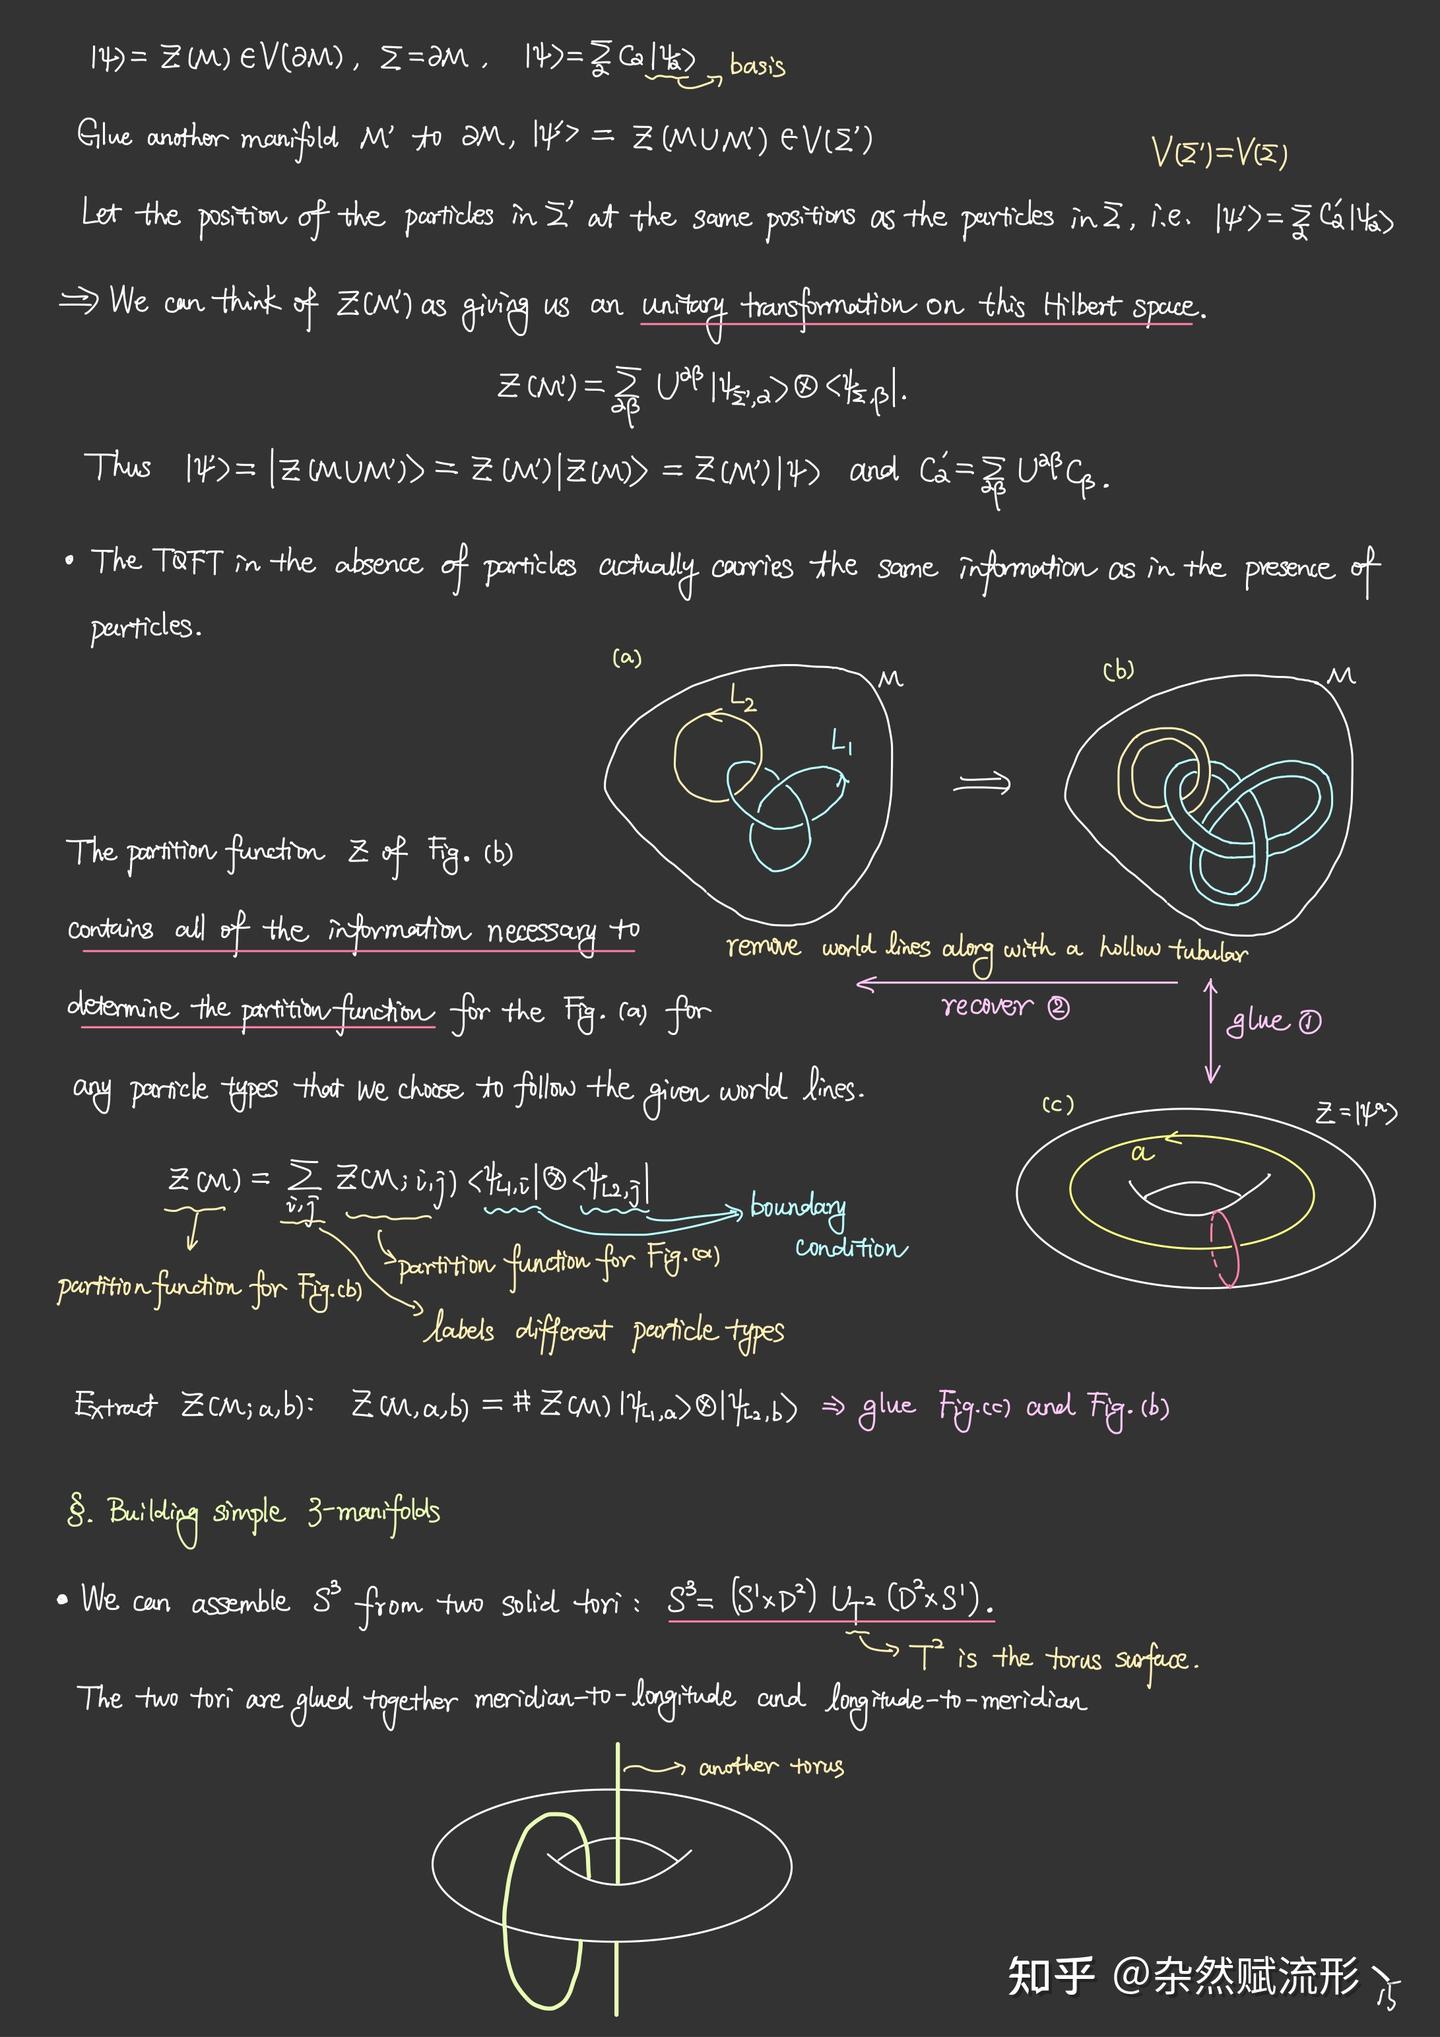 |ψ⟩ = Z(M) ∈ V(∂M), Σ = ∂M, |ψ⟩ = Σ_α C_α|ψ_α⟩ → basis
Glue another manifold M' to ∂M, |ψ'⟩ = Z(M∪M') ∈ V(Σ')
V(Σ') = V(Σ)
Let the position of the particles in Σ' at the same positions as the particles in Σ, i.e. |ψ'⟩ = Σ_α C'_α|ψ_α⟩
⇒ We can think of Z(M') as giving us an unitary transformation on this Hilbert space.
Z(M') = Σ_αβ U^αβ |ψ_Σ',α⟩ ⊗ ⟨ψ_Σ,β|.
Thus |ψ'⟩ = |Z(M∪M')⟩ = Z(M')|Z(M)⟩ = Z(M')|ψ⟩ and C'_α = Σ_αβ U^αβ C_β.
• The TQFT in the absence of particles actually carries the same information as in the presence of
particles.
(a)
M
L₂
L₁
⇒
(b)
M
The partition function Z of Fig. (b)
contains all of the information necessary to
determine the partition function for the Fig. (a) for
any particle types that we choose to follow the given world lines.
remove world lines along with a hollow tubular
recover ②
glue ①
(c)
Z = |ψ^a⟩
a
Z(M) = Σ_i,j Z(M; i,j) ⟨ψ_L1,i| ⊗ ⟨ψ_L2,j|
boundary
condition
partition function for Fig.(a)
partition function for Fig.(b)
labels different particle types
Extract Z(M; a,b): Z(M,a,b) = # Z(M) |ψ_L1,a⟩ ⊗ |ψ_L2,b⟩ ⇒ glue Fig.(c) and Fig.(b)
§. Building simple 3-manifolds
• We can assemble S³ from two solid tori: S³ = (S¹×D²) ∪_T² (D²×S¹).
T² is the torus surface.
The two tori are glued together meridian-to-longitude and longitude-to-meridian
another torus
知乎 @杂然赋流形
15